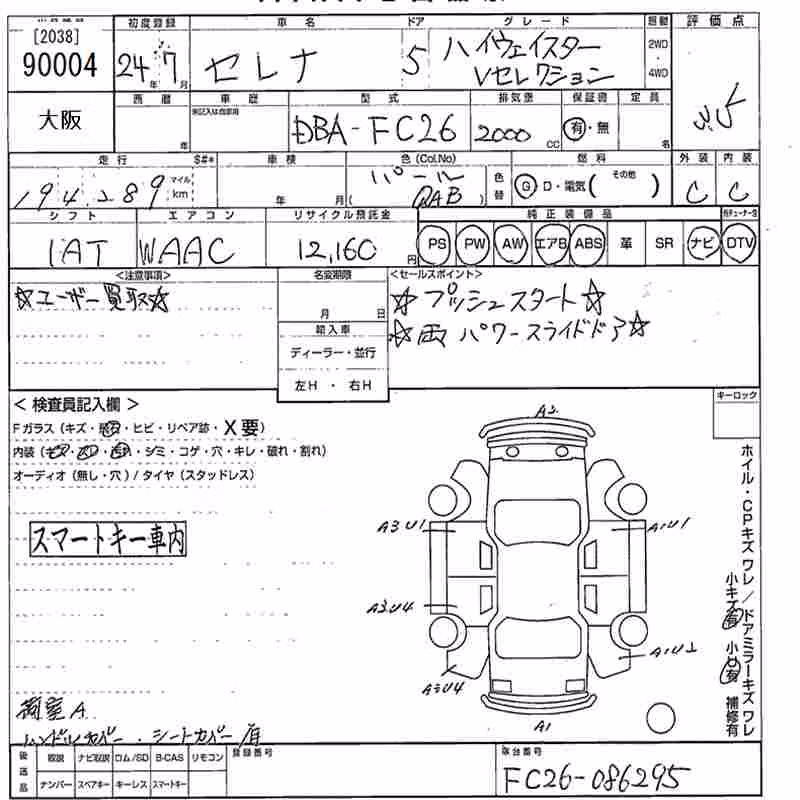 [2038]
90004
初度登録
24年7月
車名
セレナ
ドア
5
グレード
ハイウェイスター
Vセレクション
駆動
2WD
・
4WD
評価点
3.5
大阪
西暦
年
車歴
型式
DBA-FC26
排気量
2000 CC
保証書
有・無
定員
名
走行
S#*
194289
マイル
km
車検
年 月
色(Col.No)
パール
(QAB)
色替
燃料
G・D・電気( その他 )
外装
C
内装
C
シフト
IAT
エアコン
WAAC
リサイクル預託金
12,160円
純正装備品
PS PW AW エアB ABS 革 SR ナビ DTV
<注意事項>
☆ユーザー買取☆
名変期限
月 日
輸入車
ディーラー・並行
左H・右H
<セールスポイント>
☆プッシュスタート☆
☆両パワースライドドア☆
<検査員記入欄>
Fガラス(キズ・飛石・ヒビ・リペア跡・X要)
内装(キズ・・・シミ・コゲ・穴・キレ・破れ・割れ)
オーディオ(無し・穴)/タイヤ(スタッドレス)
スマートキー車内
キーロック
ホイル・CPキズワレ/ドアミラーキズワレ
小キズ有 小U有 補修有
A2
A3U1
A1U1
A3U4
A3U4
A1
ハンドルカバー・シートカバー有
後送品
取説 ナビ取説 ロム/SD B-CAS リモコン
ナンバー スペアキー キーレス スマートキー
登録番号
車台番号
FC26-086295